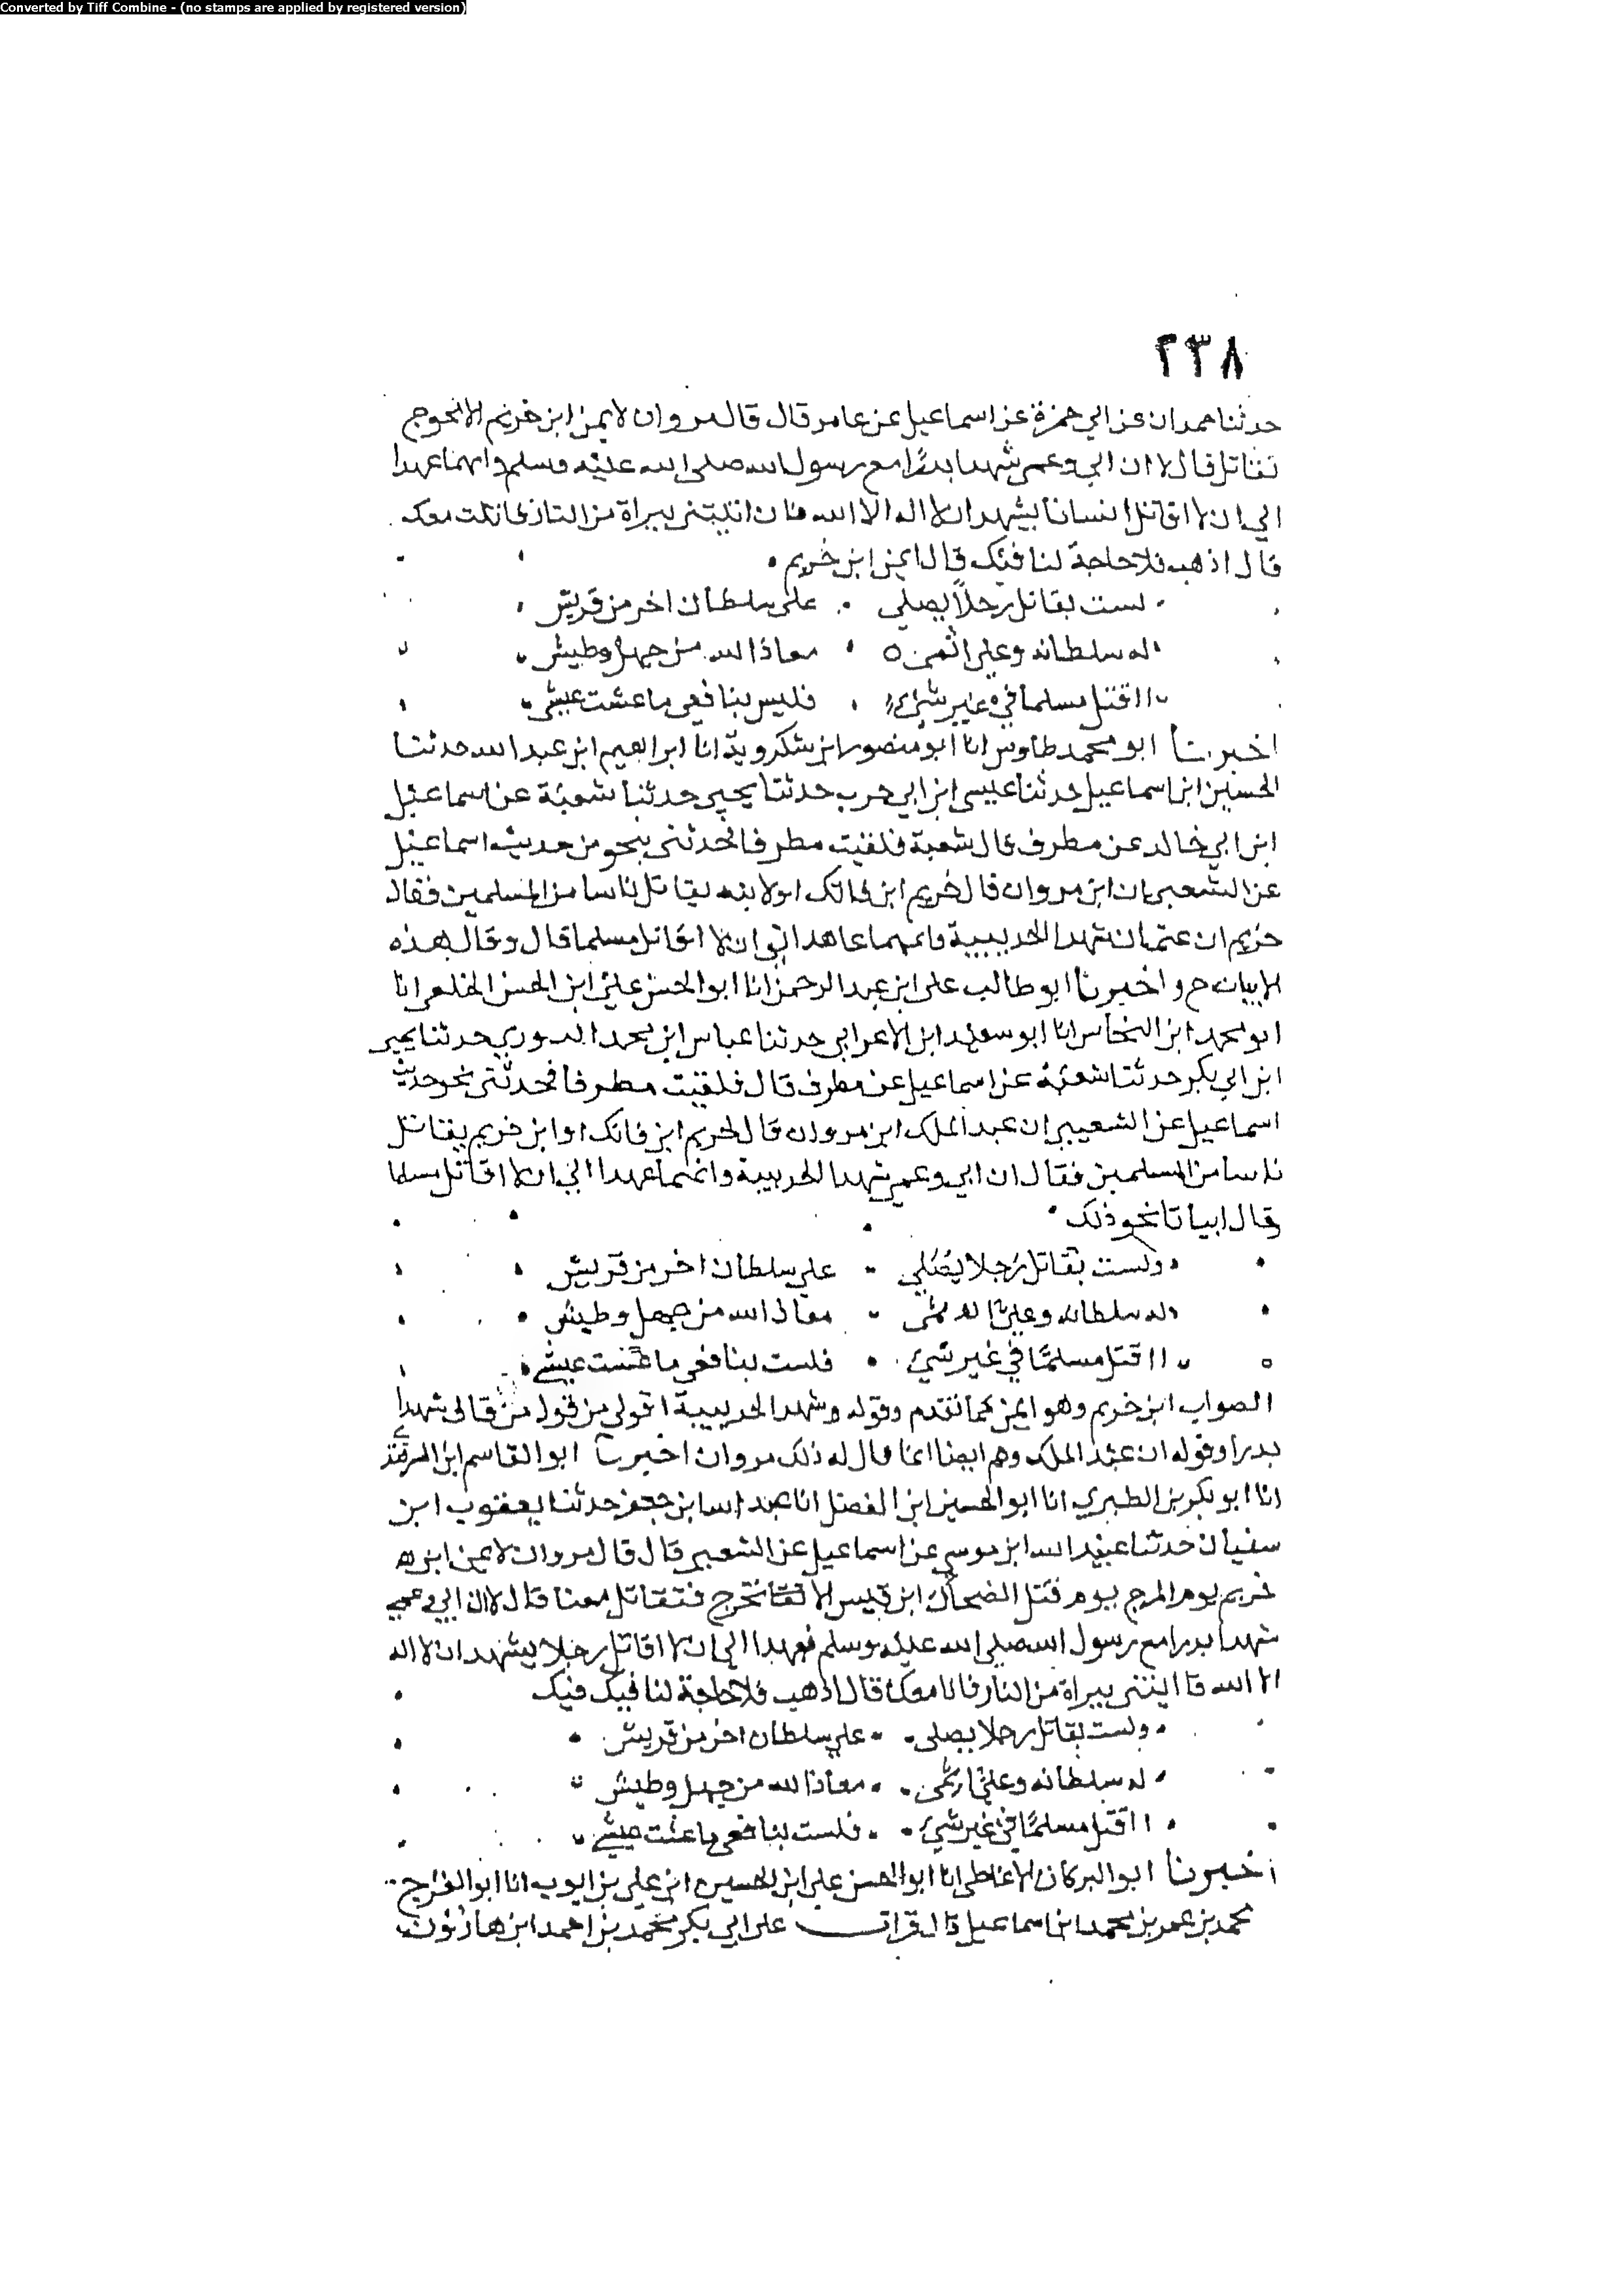 Converted by Tiff Combine - (no stamps are applied by registered version)
٢٣٨
حدثنا عبدان عن ابي حمزة عن اسماعيل عن عامر قال قال مروان لايمن ابن خريم الا تخرج
تقاتل قال لا ان ابي وعمى شهدا بدرًا مع رسول الله صلى الله عليه وسلم وانهما عهدا
الي ان لا اقاتل انسانا يشهد ان لا اله الا الله فان اتيتنى ببراة من النار قاتلت معك
قال اذهب فلا حاجة لنا فيك قال ايمن ابن خريم
لست بقاتل رجلاً يصلي على سلطان اخر من قريش
له سلطانه وعلى اثمى معاذ الله من جهل وطيش
ااقتل مسلما في غير شئ فليس بنافعى ما عشت عيشى
اخبرنا ابو محمد طاوس انا ابو منصور ابن شكرويه انا ابراهيم ابن عبد الله حدثنا
الحسين ابن اسماعيل حدثنا عيسى ابن ابي حرب حدثنا يحيى حدثنا شعبة عن اسماعيل
ابن ابي خالد عن مطرف قال شعبة فلقيت مطرفا فحدثنى بنحو من حديث اسماعيل
عن الشعبى ان ابن مروان قال لخريم ابن فاتك اولابنه يقاتل ناسا من المسلمين فقال
خريم ان عثمان شهد الحديبية وانهما عاهدا الي ان لا اقاتل مسلما قال وقال هذه
الابيات ح واخبرنا ابو طالب على ابن عبد الرحمن انا ابو الحسن علي ابن الحسن الخلعى انا
ابو محمد ابن النحاس انا ابو سعيد ابن الاعرابي حدثنا عباس ابن محمد الدوري حدثنا يحيى
ابن ابي بكر حدثنا شعبة عن اسماعيل عن مطرف قال فلقيت مطرفا فحدثنى نحو حديث
اسماعيل عن الشعبي ان عبد الملك ابن مروان قال لخريم ابن فاتك او ابن خريم يقاتل
ناسا من المسلمين فقال ان ابي وعمى شهدا الحديبية وانهما عهدا الي ان لا اقاتل مسلما
وقال ابياتا نحو ذلك
ولست بقاتل رجلا يصلي علي سلطان اخر من قريش
له سلطانه وعلي اثمى معاذ الله من جهل وطيش
ااقتل مسلمًا في غير شئ فلست بنافعى ما عشت عيشي
الصواب ابن خريم وهو ايمن كما تقدم وقوله وشهدا الحديبية اقولى من قول من قال شهدا
بدرا وقوله ان عبد الملك وهم ايضا انما قال له ذلك مروان اخبرنا ابو القاسم ابن السمرقندي
انا ابو بكر بن الطبري انا ابو الحسين ابن الفضل انا عبد الله ابن جعفر حدثنا يعقوب ابن
سفيان حدثنا عبيد الله ابن موسي عن اسماعيل عن الشعبى قال قال مروان لايمن ابن
خريم يوم المرج يوم قتل الضحاك ابن قيس الا تخرج فتقاتل معنا قال لا ان ابي وعمى
شهدا بدرا مع رسول الله صلى الله عليه وسلم فعهدا الى ان لا اقاتل رجلا يشهد ان لا اله
الا الله فا اتيتنى ببراة من النار فانا معك قال اذهب فلا حاجة لنا فيك فيك
ولست بقاتل رجلا يصلى علي سلطان اخر من قريش
له سلطانه وعلي اثمى معاذ الله من جهل وطيش
ااقتل مسلمًا في غير شئ فلست بنافعى ما عشت عيشي
اخبرنا ابو البركات الانماطى انا ابو الحسن على ابن الحسين ابن علي بن ايوب انا ابو الفرج
محمد بن عمر بن محمد ابن اسماعيل قال قرات على ابي بكر محمد بن احمد ابن هارون